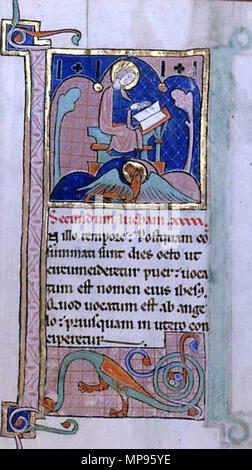 Secundum lucham
In illo tempore: Postquam co
summati sunt dies octo ut
circumcideretur puer: voca
tum est nomen eius ihesus
Quod vocatum est ab ange
lo: priusquam in utero con
ciperetur
alamy
MP95YE